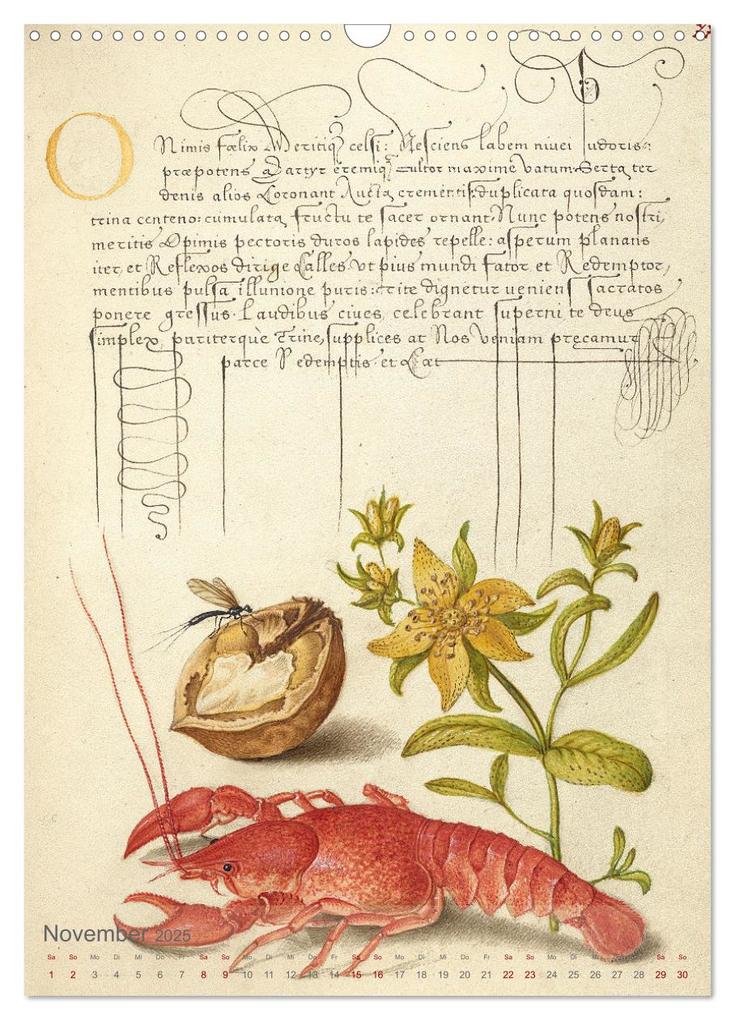 O Nimis fœlix Meritiq celsi: Nesciens labem nivei pudoris:
præpotens Martyr eremiq cultor maxime vatum. Serta ter
denis alios Coronant Aucta crementis: duplicata quosdam:
trina centeno: cumulata fructu te sacer ornant. Nunc potens nostri,
meritis Opimis pectoris duros lapides repelle: asperum planans
iter, et Reflexos dirige Calles. Vt pius mundi Sator, et Redemptor,
mentibus pulsa illuvione puris: rite dignetur veniens sacratos
ponere gressus. Laudibus cives, celebrant superni te deus
simplex, pariterque Trine, supplices at Nos veniam precamur
parce Redemptis. et Cæt
November 2025
Sa So Mo Di Mi Do Fr Sa So Mo Di Mi Do Fr Sa So Mo Di Mi Do Fr Sa So Mo Di Mi Do Fr Sa So
1 2 3 4 5 6 7 8 9 10 11 12 13 14 15 16 17 18 19 20 21 22 23 24 25 26 27 28 29 30